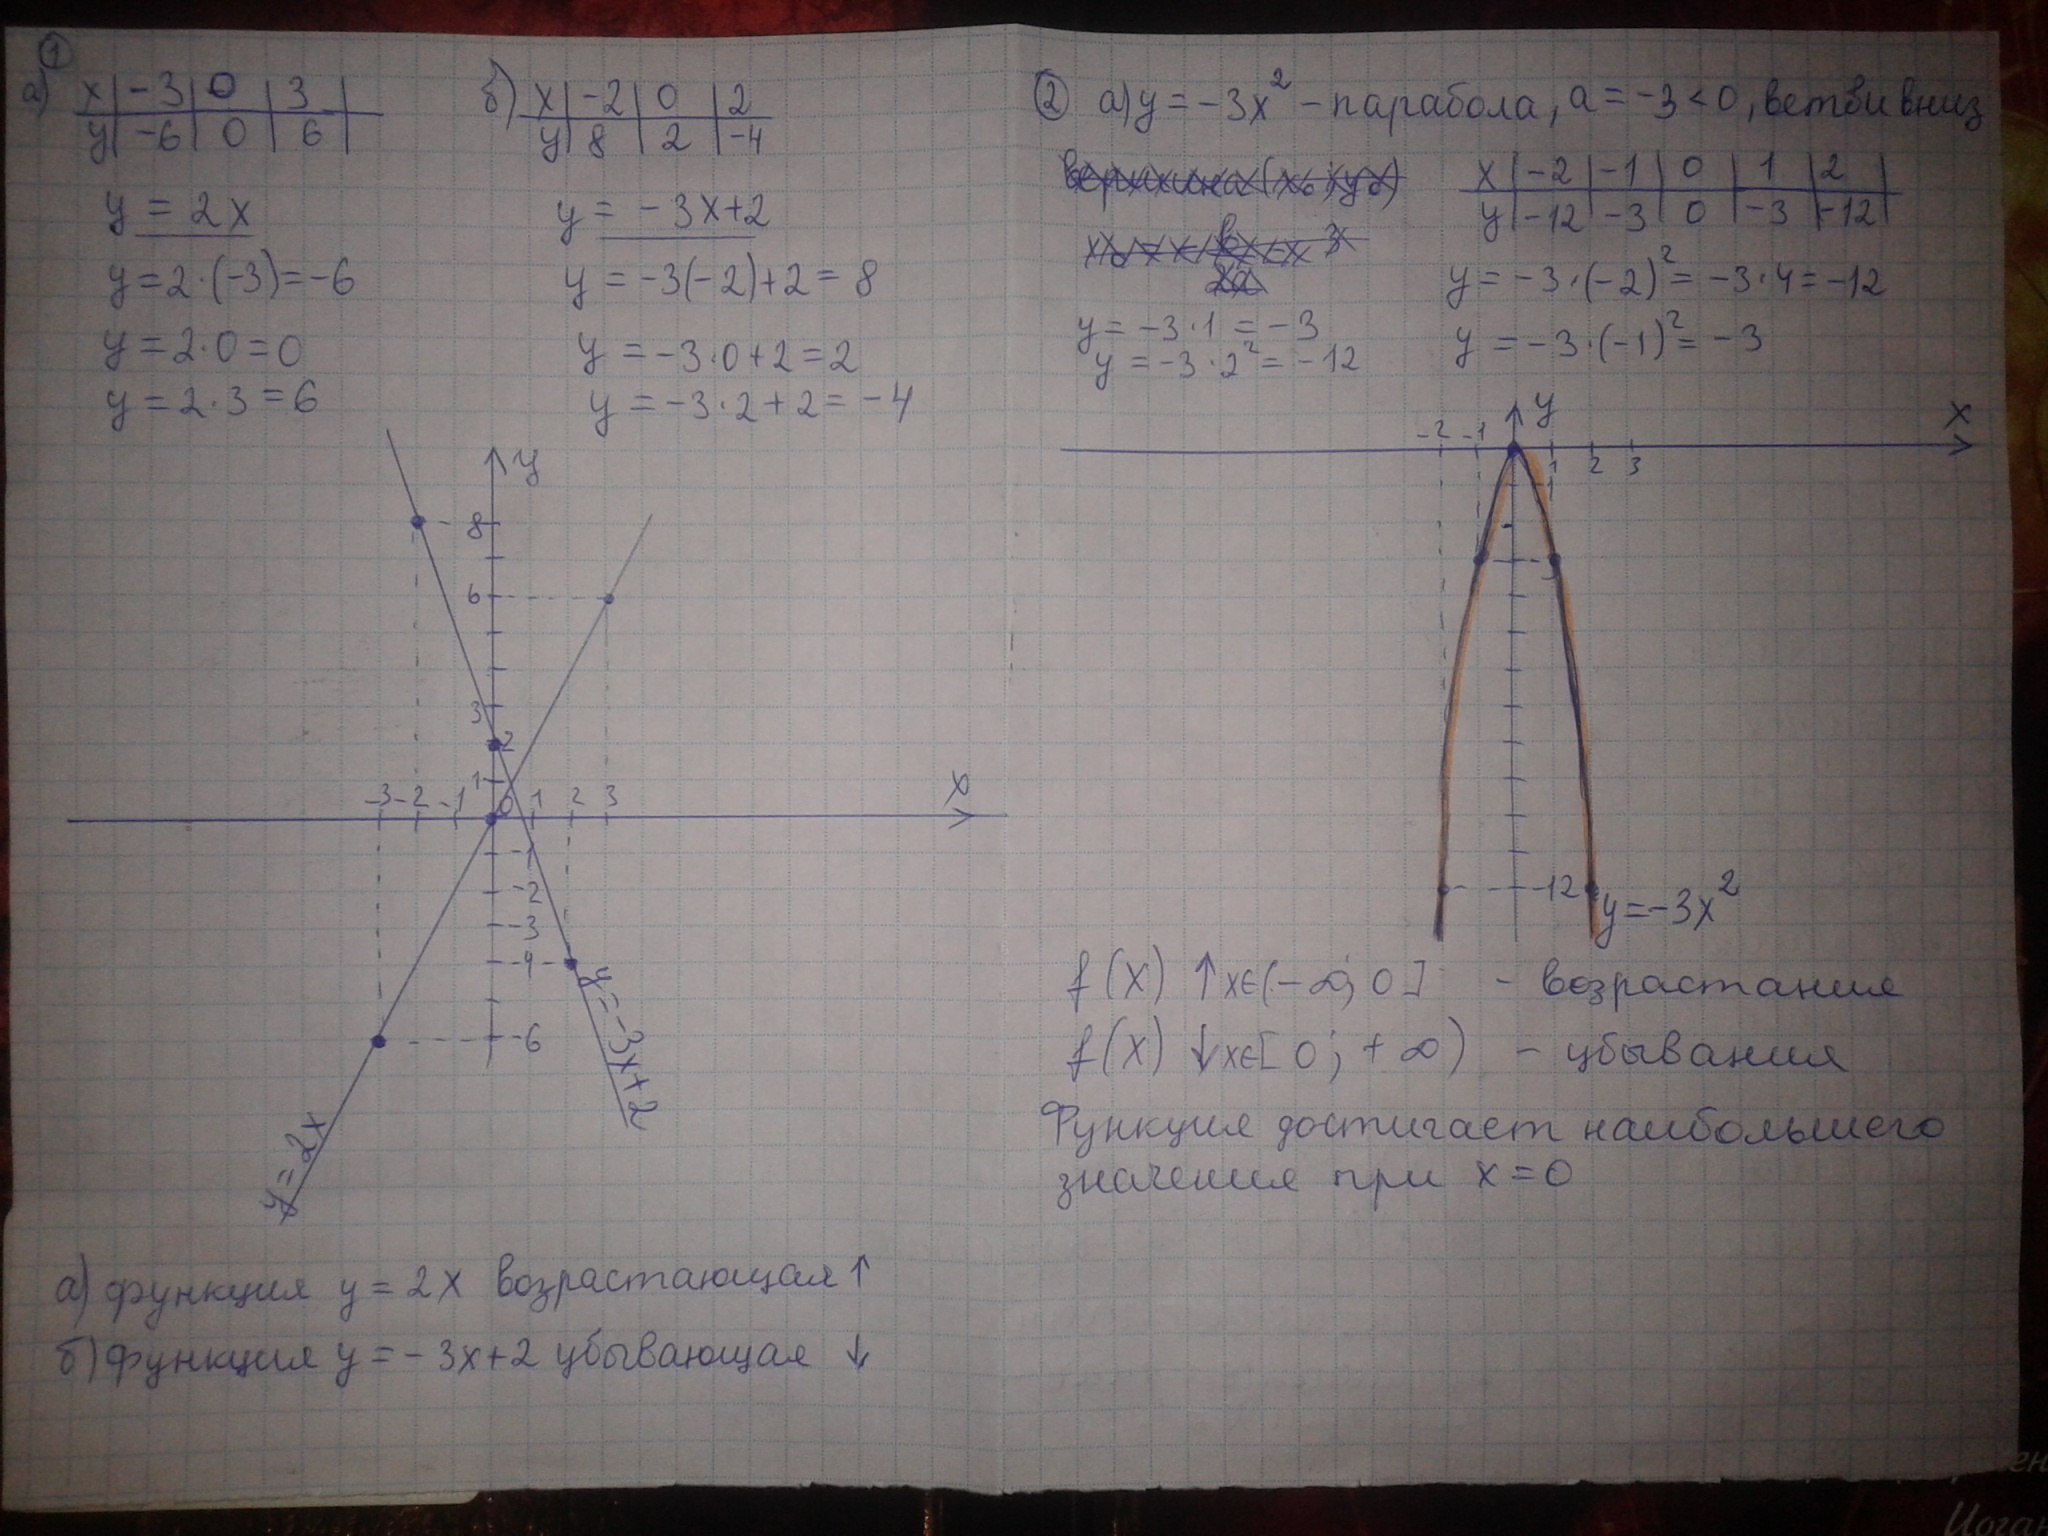 ①
а) x | -3 | 0 | 3 |
y | -6 | 0 | 6 |
y = 2x
y = 2·(-3) = -6
y = 2·0 = 0
y = 2·3 = 6
б) x | -2 | 0 | 2
y | 8 | 2 | -4
y = -3x+2
y = -3(-2)+2 = 8
y = -3·0+2 = 2
y = -3·2+2 = -4
y
8
6
3
2
1
-3 -2 -1 0 1 2 3
x
-1
-2
-3
-4
-6
y = 2x
y = -3x+2
а) функция y = 2x возрастающая ↑
б) функция y = -3x+2 убывающая ↓
② а) y = -3x² - парабола, a = -3 < 0, ветви вниз
x | -2 | -1 | 0 | 1 | 2 |
y | -12 | -3 | 0 | -3 | -12 |
y = -3·(-2)² = -3·4 = -12
y = -3·(-1)² = -3
y = -3·1 = -3
y = -3·2² = -12
y
x
-2 -1 1 2 3
-12
y = -3x²
f(x) ↑ x∈(-∞; 0] - возрастания
f(x) ↓ x∈[0; +∞) - убывания
Функция достигает наибольшего
значения при x = 0